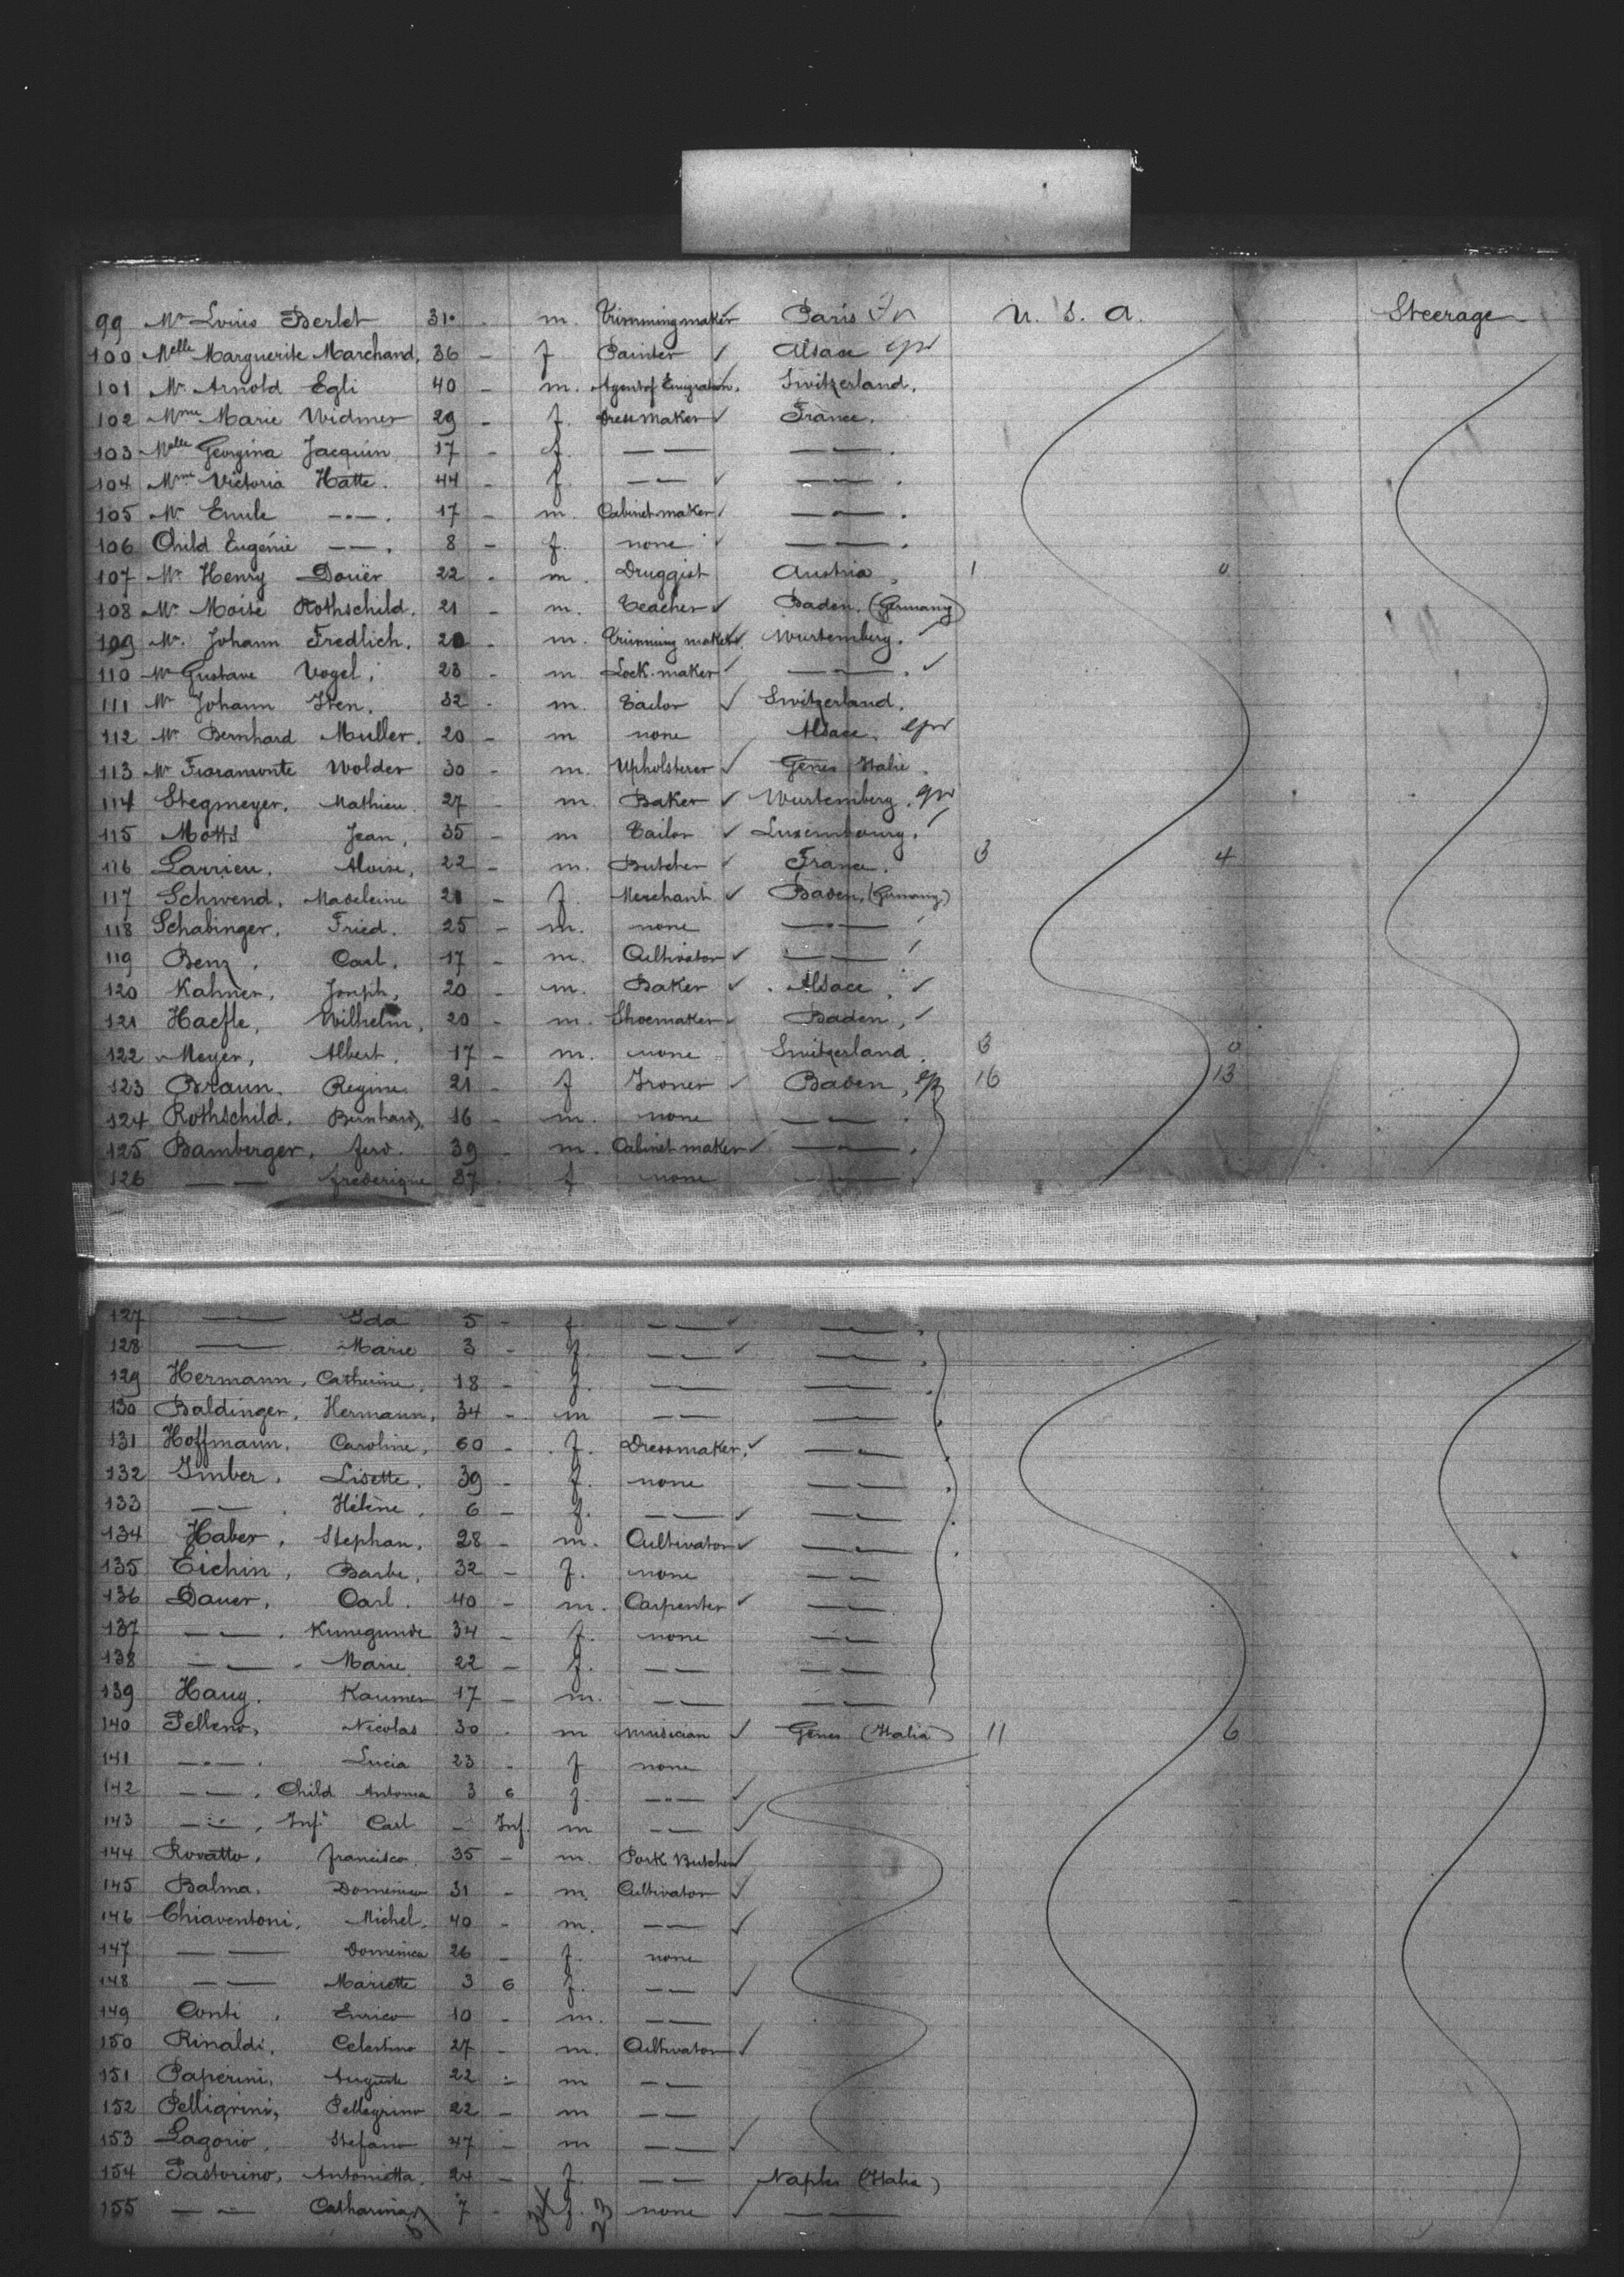 99 Mr Louis Berlet 31 - m. Trimming maker Paris U. S. A. Steerage
100 Melle Marguerite Marchand, 36 - f Painter Alsace
101 Mr. Arnold Egli 40 - m. Agent of Emigration. Switzerland.
102 Mme Marie Widmer 29 - f. Dressmaker France.
103 Melle Georgina Jacquin 17 - f. — — — — .
104 Mme Victoria Hatte. 44 - f. — — — — .
105 Mr Emile — — . 17 - m. Cabinet maker — — .
106 Child Eugénie — — . 8 - f. none — — .
107 Mr Henry Douër 22 - m. Druggist Austria, 1 0
108 Mr Moïse Rothschild. 21 - m. Teacher Baden. (Germany)
109 Mr. Johann Fredlich. 20 - m. Trimming maker Wurtemberg.
110 Mr Gustave Vogel. 23 - m. Lock-maker — — .
111 Mr Johann Iten. 32 - m. Tailor Switzerland.
112 Mr Bernhard Muller. 20 - m none Alsace.
113 Mr Fioramonte Wolder 30 - m. Upholsterer Gênes Italie.
114 Stegmeyer, Mathieu. 27 - m. Baker Wurtemberg.
115 Motts Jean, 35 - m Tailor Luxembourg.
116 Larrieu. Aloise, 22 - m. Butcher France. 3 4
117 Schwend, Madeleine 21 - f. Merchant Baden, (Germany)
118 Schabinger. Fried. 25 - m. none — —
119 Benz, Carl. 17 - m. Cultivator — —
120 Kahner, Joseph, 20 - m. Baker Alsace.
121 Haefle, Wilhelm, 20 - m. Shoemaker Baden,
122 Meyer, Albert. 17 - m. none Switzerland. 3 0
123 Braun. Regine. 21 - f Ironer Baden, 16 13
124 Rothschild. Bernhard, 16 - m. none — — .
125 Bamberger, Ferd. 39 - m. Cabinet maker — — .
126 — — Frederique 37 - f none — —
127 — — Ida 5 - f. — — — — .
128 — — Marie 3 - f. — — — — .
129 Hermann, Catherine, 18 - f. — — — — .
130 Baldinger, Hermann, 34 - m — — — — .
131 Hoffmann, Caroline, 60 - f. Dressmaker, — — .
132 Imber, Lisette, 39 - f. none — — .
133 — — . Hélène, 6 - f. — — — — .
134 Haber, Stephan, 28 - m. Cultivator — — .
135 Eichin, Barbe, 32 - f. none — —
136 Dauer, Carl. 40 - m. Carpenter — —
137 — — . Kunegunde 34 - f. none — —
138 — — . Marie 22 - f. — — — —
139 Haug. 17 - m. — — — —
140 Pelleno, Nicolas 30 - m musician Gênes (Italia) 11 6
141 — — . Lucia 23 - f none
142 — — . Child Antonia 3 6 f. — —
143 — — , Inft Carl - Inf. m — —
144 Rovatto, Francisco. 35 - m. Pork Butcher
145 Balma. Domenico 31 - m. Cultivator
146 Chiaventoni, Michel. 40 - m. — —
147 — — Domenica 26 - f. none
148 — — Mariette 3 6 f. — —
149 Conti, Enrico 10 - m. — —
150 Rinaldi, Celestino 27 - m. Cultivator
151 Paperini, Auguste 22 - m — —
152 Pelligrini, Pellegrino 22 - m — —
153 Lagorio, Stefano 47 - m — —
154 Pastorino, Antonietta. 24 - f. — — Naples (Italie)
155 — — Catharina 7 - f. none — —